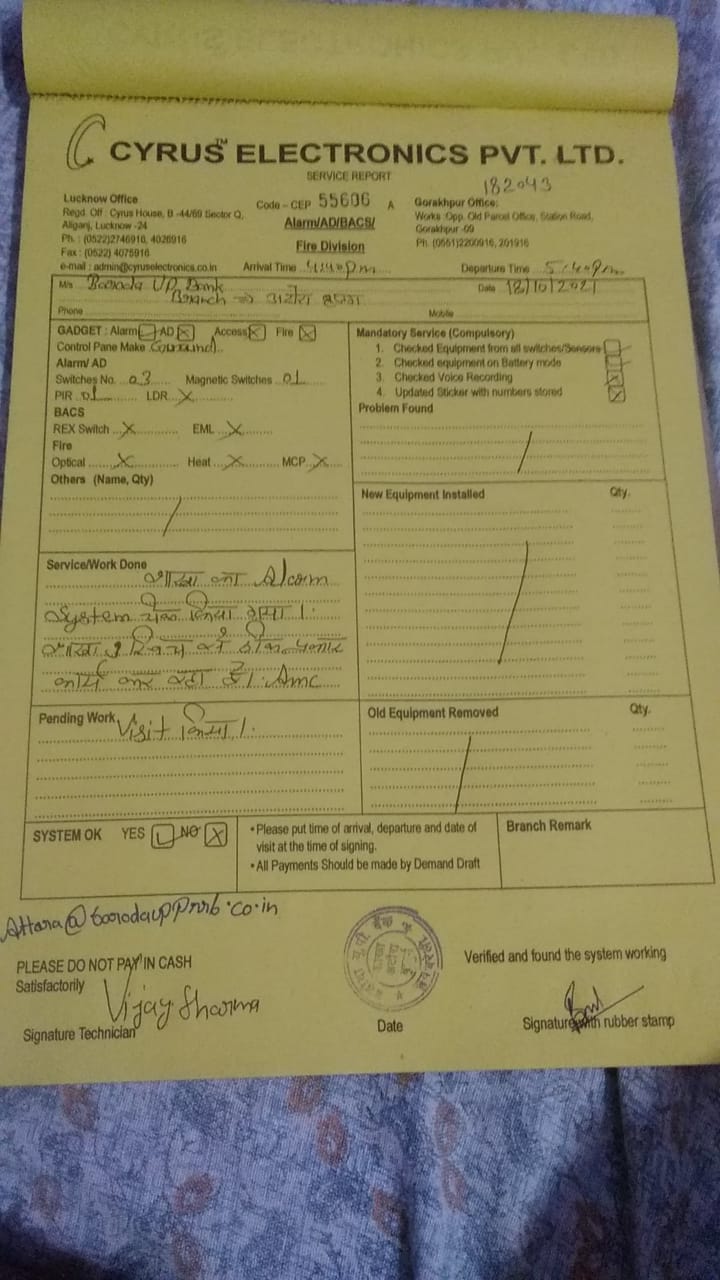 CYRUS™ ELECTRONICS PVT. LTD.
SERVICE REPORT
182043
Lucknow Office
Regd. Off : Cyrus House, B -44/69 Sector Q,
Aliganj, Lucknow -24
Ph. : (0522)2746916, 4026916
Fax : (0522) 4075916
e-mail : admin@cyruselectronics.co.in
Code - CEP 55606 A
Alarm/AD/BACS/
Fire Division
Gorakhpur Office:
Works : Opp. Old Parcel Office, Station Road,
Gorakhpur -09
Ph. (0551)2200916, 201916
Arrival Time 4:40 pm
Departure Time 5:40pm
M/s Baroda UP Bank
Date 18/10/2021
Branch ⇒ अतर्रा
Phone
Mobile
GADGET : Alarm AD X Access X Fire X
Control Pane Make
Alarm/ AD
Switches No. 03 Magnetic Switches 01
PIR 01 LDR X
BACS
REX Switch X EML X
Fire
Optical X Heat X MCP X
Others (Name, Qty)
Mandatory Service (Compulsory)
1. Checked Equipment from all switches/Sensors
2. Checked equipment on Battery mode
3. Checked Voice Recording X
4. Updated Sticker with numbers stored X
Problem Found
New Equipment Installed Qty.
Service/Work Done
शाखा का Alarm
System चेक किया गया।
शाखा में सिस्टम ठीक प्रकार
कार्य कर रहा है। Amc
Pending Work Visit किया।
Old Equipment Removed Qty.
SYSTEM OK YES NO X
• Please put time of arrival, departure and date of
visit at the time of signing.
• All Payments Should be made by Demand Draft
Branch Remark
Attara@barodauprrb.co.in
PLEASE DO NOT PAY IN CASH
Satisfactorily
Vijay Sharma
Signature Technician
Date
Verified and found the system working
Signature with rubber stamp